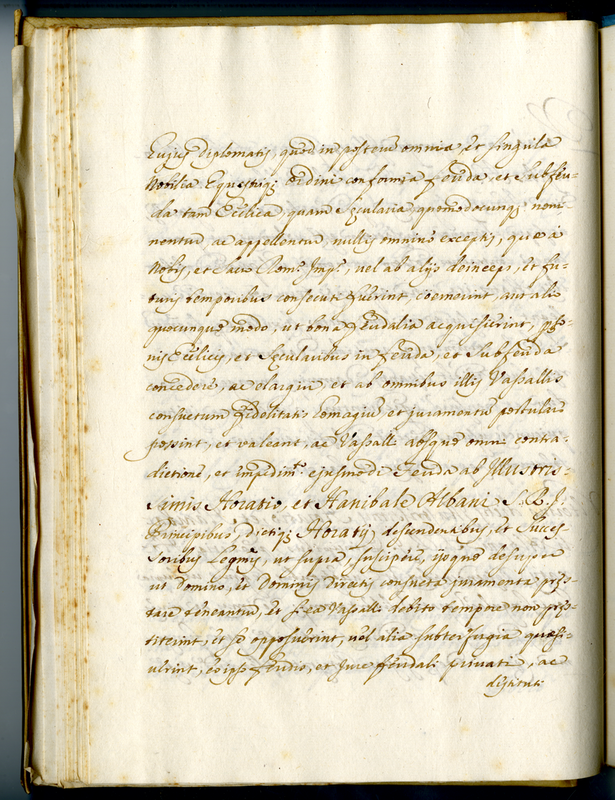 cujus diplomatis, quod in posterũ omnia, et singula
Nobilia Equestriq; ordini conformia feuda, et Subfeu-
da tam Ecclica, quam Sęcularia quomodocunq; nomi-
nentur, ac appellentur, nullis omninò exceptis, quæ à
Nobis, et Sacr. Rom.º Imp.º, vel ab alijs deinceps, et fu-
turis temporibus consecuti fuerint, coemerint, aut alio
quocunque modo, ut bona feudalia acquisierint, pso-
nis Ecclicis, et Sęcularibus in feuda, et Subfeuda
concedere, ac elargiri, et ab omnibus illis Vassallis
consuetum fidelitatis homagiũ, et juramentũ postulare
possint, et valeant, ac Vassalli absque omni contra-
dictione, et impedim.º ejusmodi Feuda ab Illustris-
simis Horatio, et Hanibale Albani S. R. I.
Principibus, dictiq; Horatij descendentibus, et Succes
soribus Legmis, ut supra, suscipere, ijsque desuper
ut Domino, et Dominis directis consueta juramenta pręs-
tare teneantur, et si ea Vassalli debito tempore non pręs-
titerint, et se opposuerint, vel alia subterfugia quæsi-
verint, eo ipso feudo, et Jure feudali privati, ac
destituti